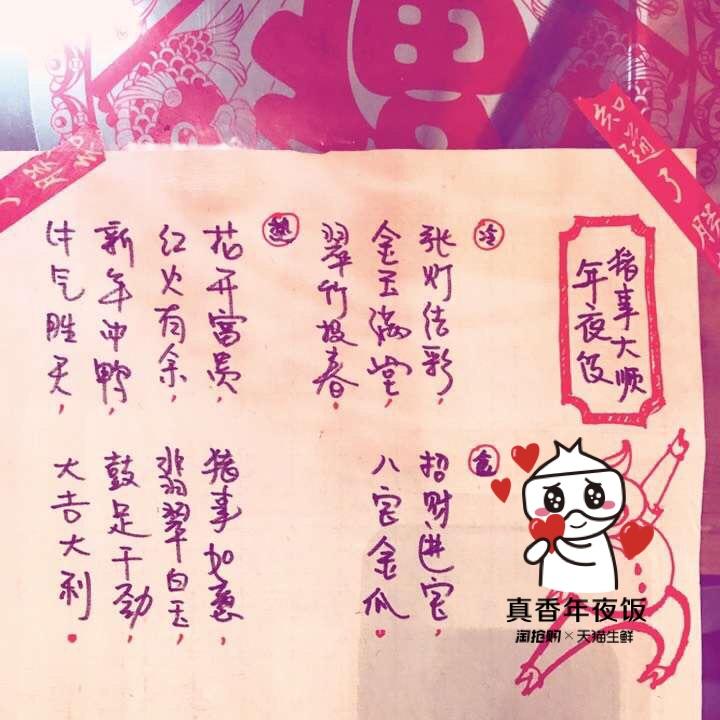 知道了
猪事大顺
年夜饭
冷
张灯结彩,
金玉满堂,
翠竹报春,
招财进宝,
八宝金瓜,
热
花开富贵,
红火有余,
新年冲鸭,
牛气胜天,
猪事如意,
翡翠白玉,
鼓足干劲,
大吉大利。
真香年夜饭
淘抢购×天猫生鲜